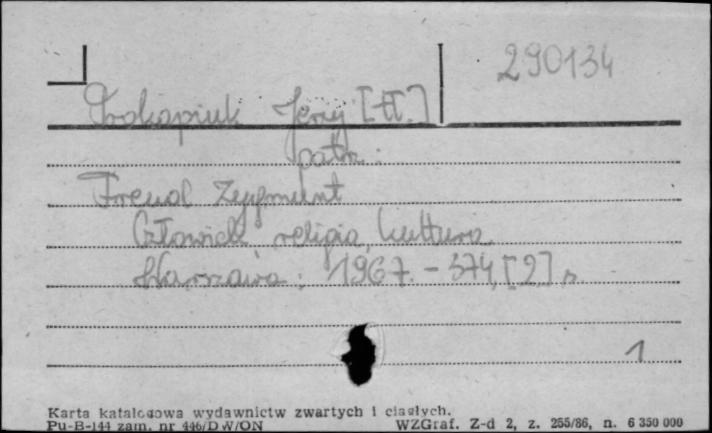 290134
Prokopiuk Jerzy [tł.]
patrz:
Freud Zygmunt
Człowiek religia, kultura
Warszawa: 1967. - 374, [2] s
1
Karta katalogowa wydawnictw zwartych i ciągłych.
Pu-B-144 zam. nr 446/DW/ON WZGraf. Z-d 2, z. 255/86, n. 6 350 000